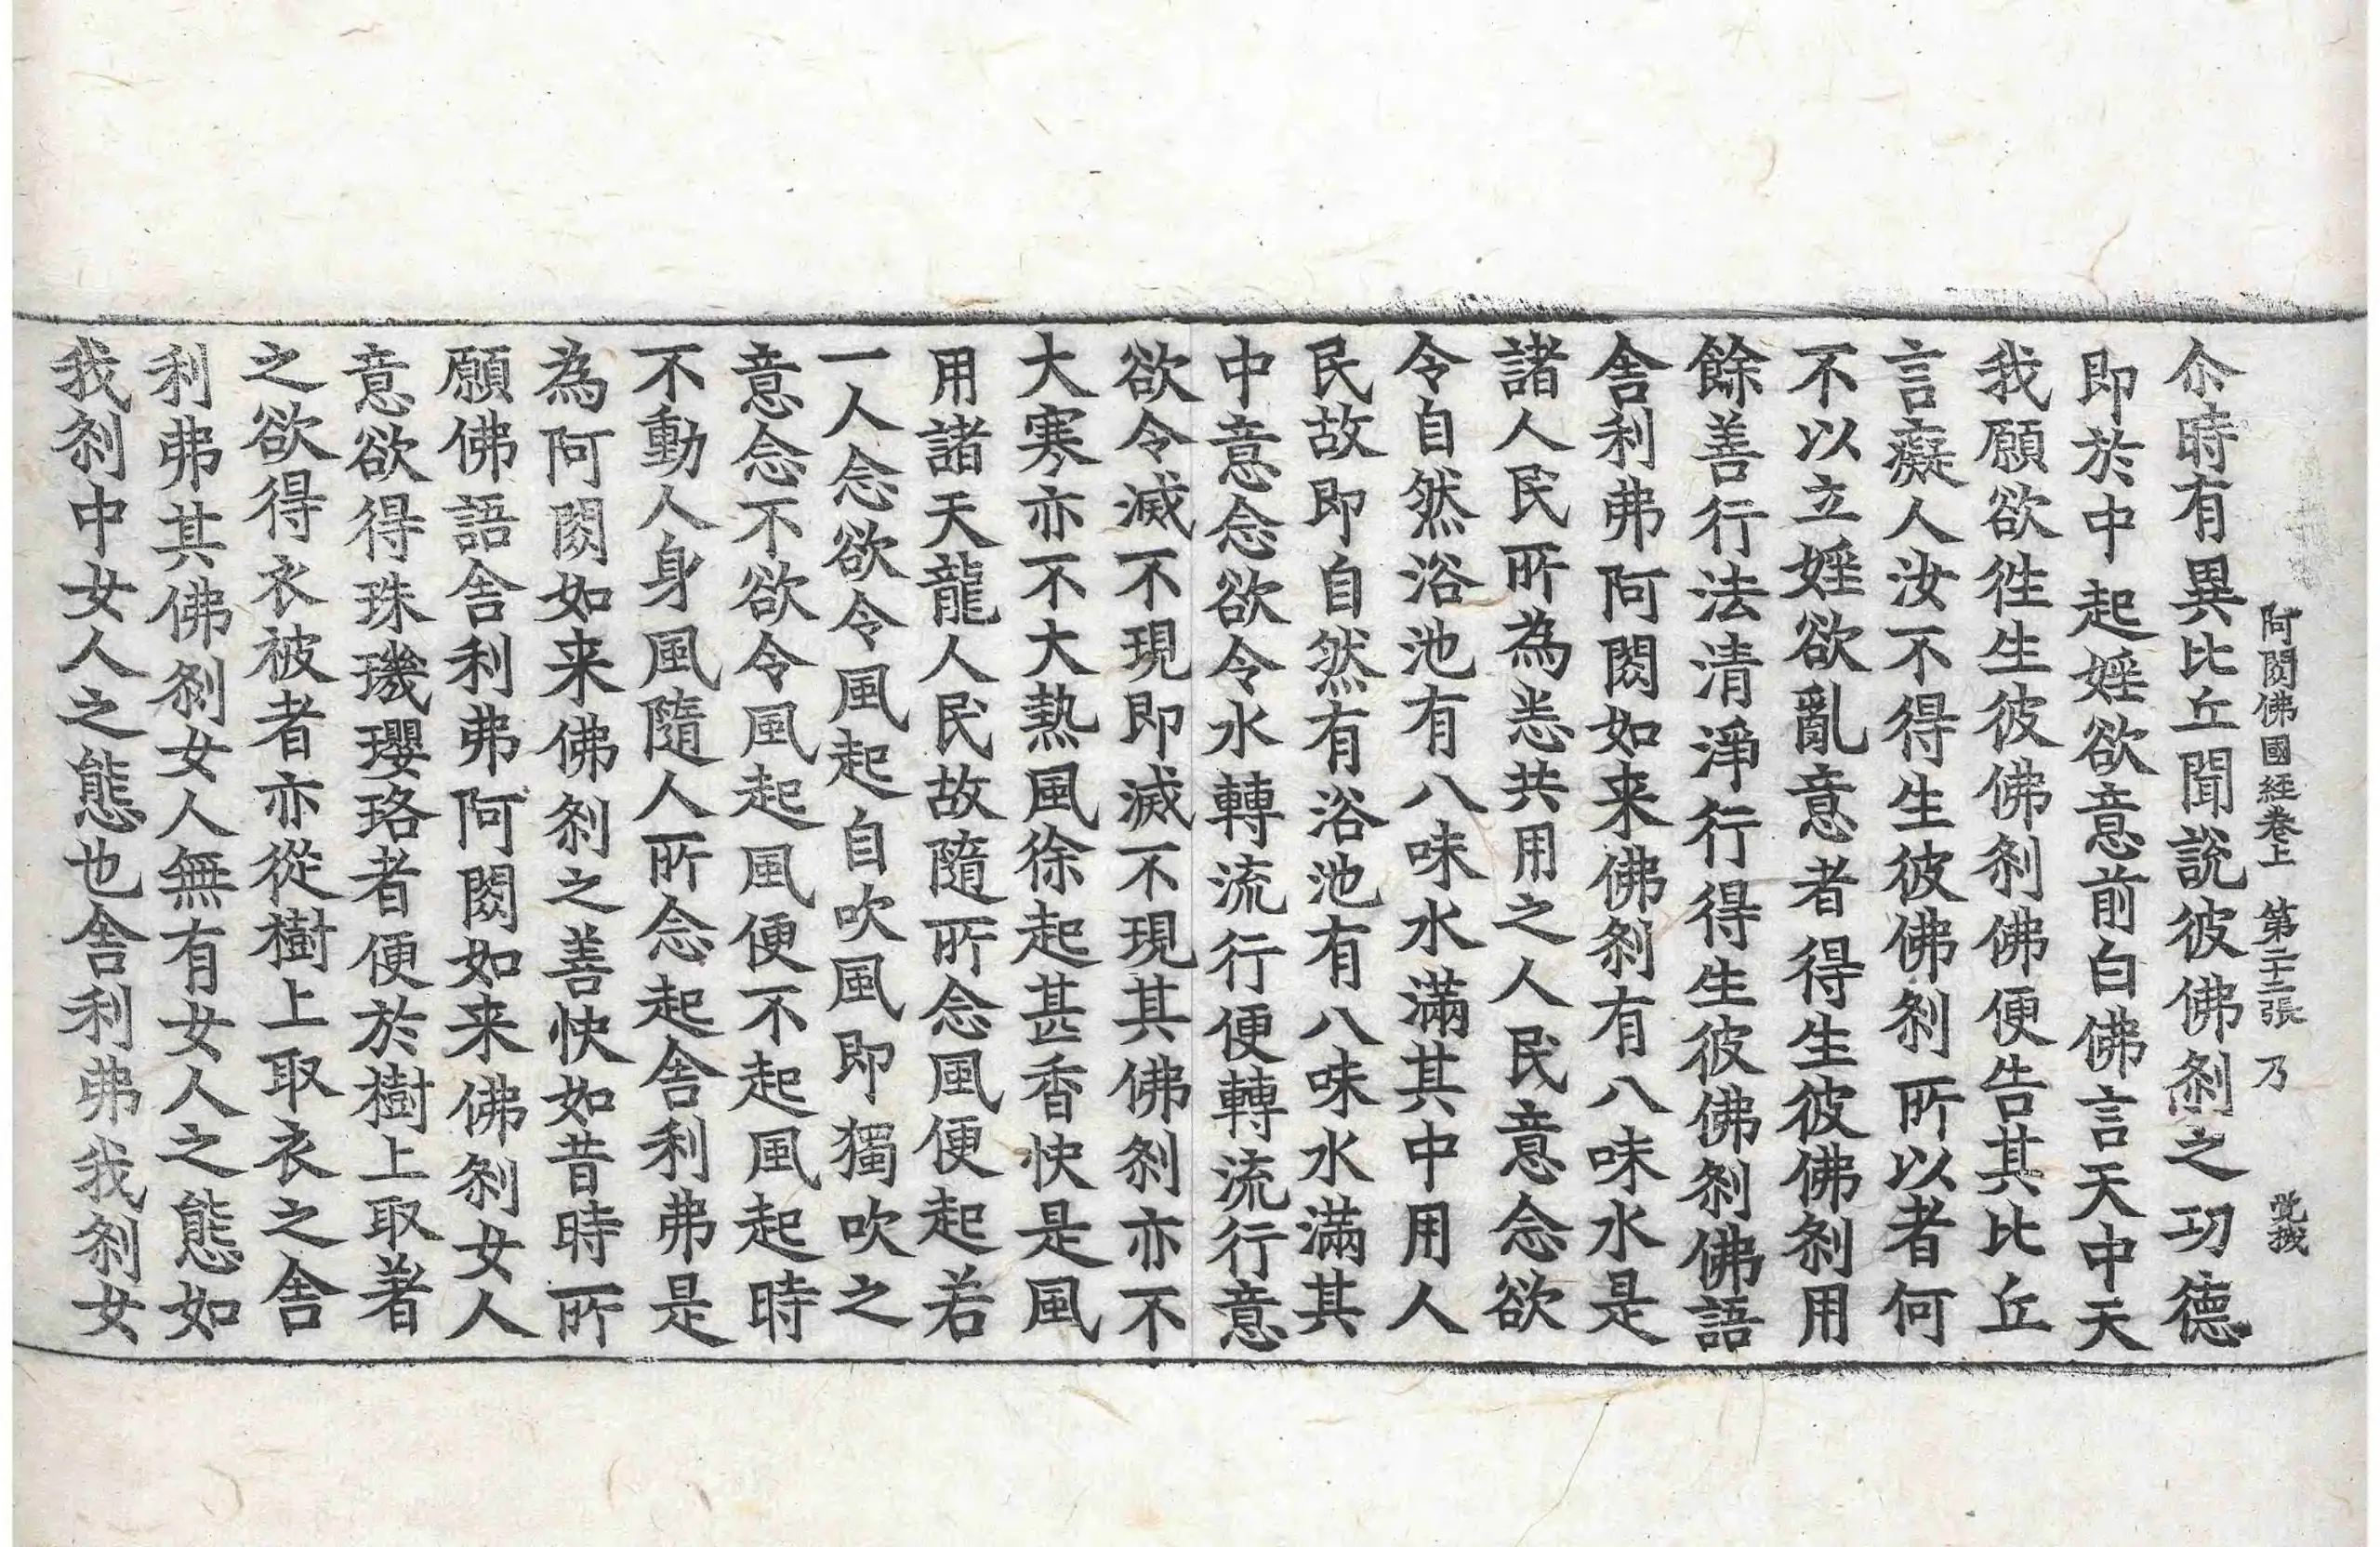 阿閦佛國經卷上　第二十二張　乃
尒時有異比丘聞說彼佛刹之功德
即於中起婬欲意前白佛言天中天
我願欲徃生彼佛刹佛便告其比丘
言癡人汝不得生彼佛刹所以者何
不以立婬欲亂意者得生彼佛刹用
餘善行法清淨行得生彼佛刹佛語
舎利弗阿閦如来佛刹有八味水是
諸人民所為悉共用之人民意念欲
令自然浴池有八味水滿其中用人
民故即自然有浴池有八味水滿其
中意念欲令水轉流行便轉流行意
欲令滅不現即滅不現其佛刹亦不
大寒亦不大熱風徐起甚香快是風
用諸天龍人民故隨所念風便起若
一人念欲令風起自吹風即獨吹之
意念不欲令風起風便不起風起時
不動人身風隨人所念起舎利弗是
為阿閦如来佛刹之善快如昔時所
願佛語舎利弗阿閦如来佛刹女人
意欲得珠璣瓔珞者便於樹上取著
之欲得衣被者亦從樹上取衣之舎
利弗其佛刹女人無有女人之態如
我刹中女人之態也舎利弗我刹女